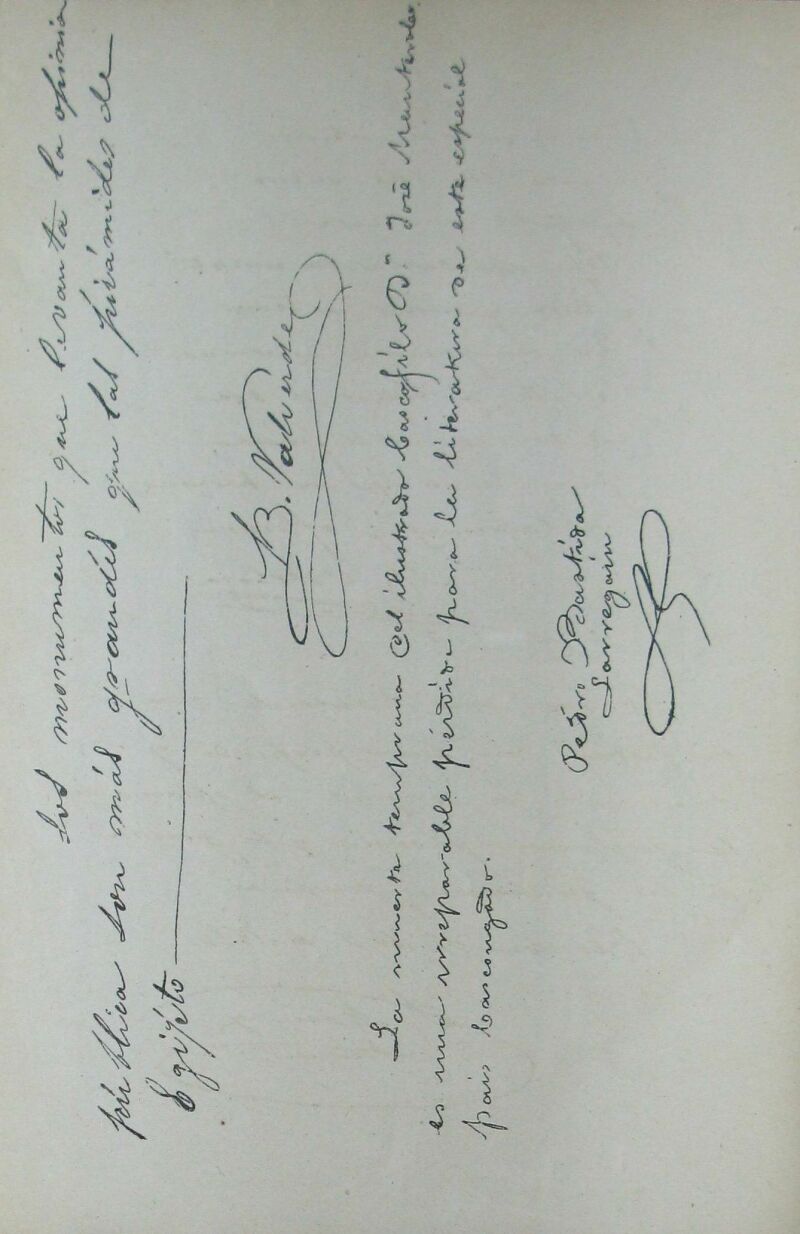 Los monumentos que levanta la opinion
pública son más grandes que las pirámides de
Egipto
B. Valverde
La muerte temprana del ilustrado bascofilo Dn José Manterola
es una irreparable pérdida para la literatura de este especial
país bascongado.
Pedro Bastida
Larregain